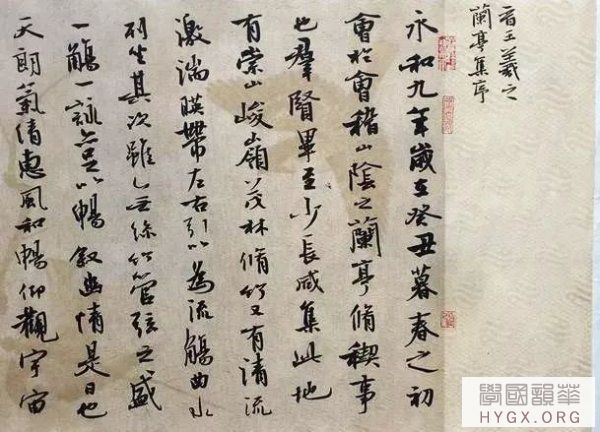 晋王羲之
蘭亭集序
永和九年歲在癸丑暮春之初
會於會稽山陰之蘭亭脩稧事
也羣賢畢至少長咸集此地
有崇山峻嶺茂林脩竹又有清流
激湍暎帶左右引以為流觴曲水
列坐其次雖無絲竹管弦之盛
一觴一詠亦足以暢敘幽情是日也
天朗氣清惠風和暢仰觀宇宙
學國韻華
HYGX.ORG